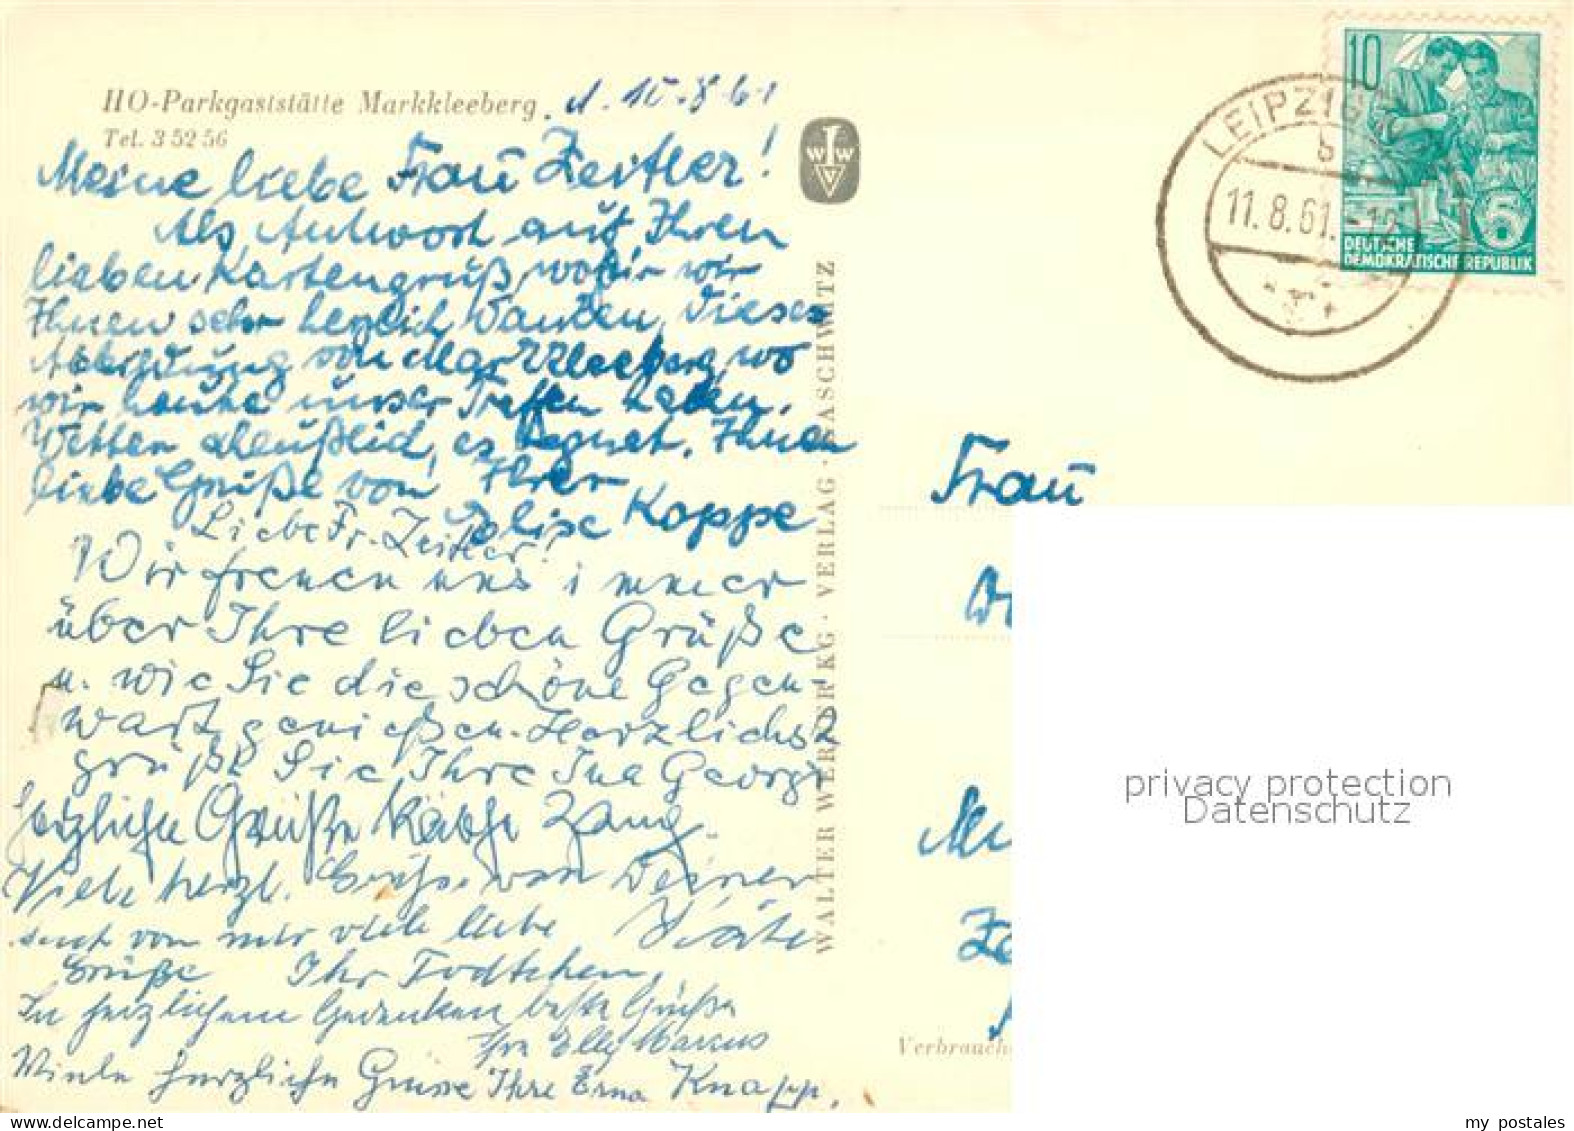 HO-Parkgaststätte Markkleeberg
Tel. 3 52 56
d. 10.8.61
Meine liebe Frau Zeitler!
Als Antwort auf Ihren
lieben Kartengruß, wofür wir
Ihnen sehr herzlich danken, dieses
von Markkleeberg, wo
wir heute unser Treffen haben.
Wetter scheußlich, es regnet. Ihnen
liebe Grüße von Ihrer
Elise Koppe
Liebe Fr. Zeitler!
Wir freuen uns immer
über Ihre lieben Grüße
u. wie Sie die schöne Gegen-
wart genießen. Herzlichst
grüßt Sie Ihre Ina Georgi
Herzliche Grüße Käthe
Viele herzl. Grüße von Deiner
Käte
auch von mir viele liebe
Grüße Ihr
In herzlichem Gedenken beste Grüße
Ihre Elly Marcus
Viele herzliche Grüsse Ihre Erna Knapp.
WALTER WERNER KG · VERLAG · GASCHWITZ
W W
V
LEIPZIG
b
11.8.61.-12
10
5
DEUTSCHE
DEMOKRATISCHE REPUBLIK
Frau
Verbrauche
privacy protection
Datenschutz
my postales